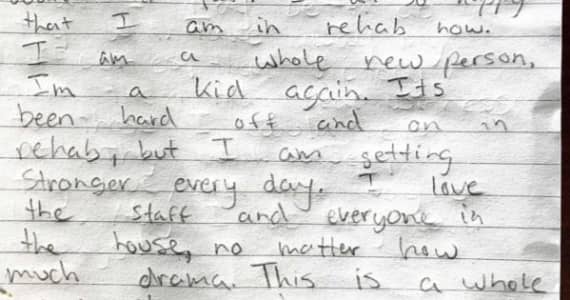 so happy
that I am in rehab now.
I am a whole new person,
Im a kid again. Its
been hard off and on in
rehab, but I am getting
Stronger every day. I love
the Staff and everyone in
the house, no matter how
much drama. This is a whole